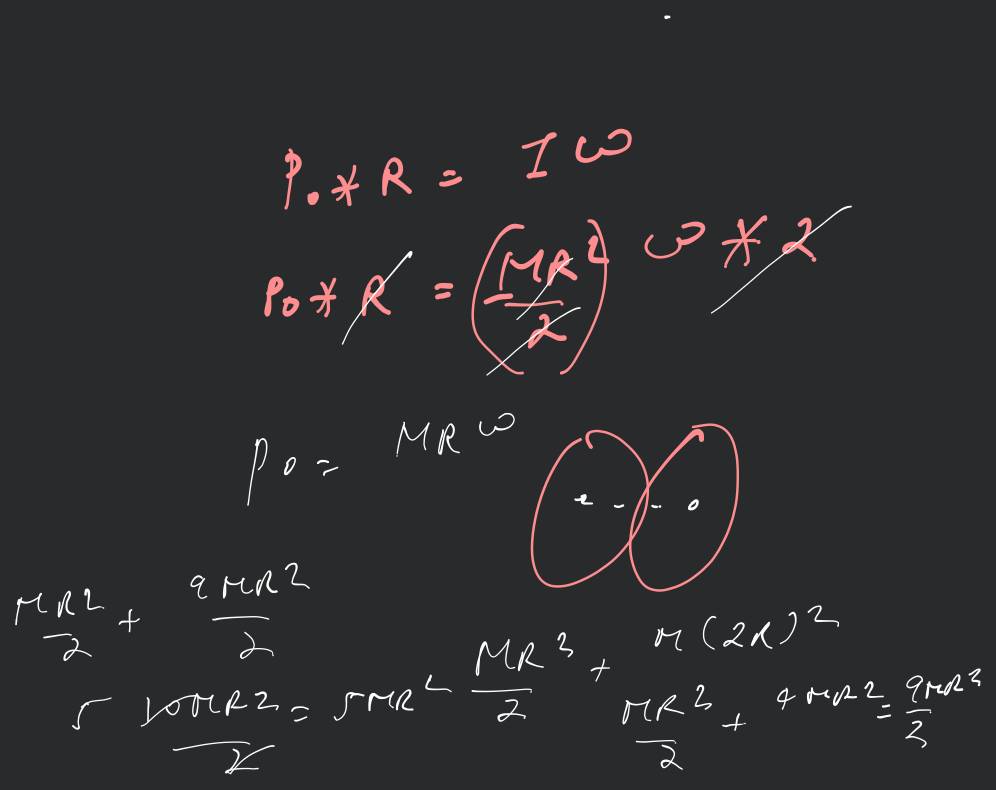 P₀ * R = I ω
P₀ * R = (MR²/2) ω * 2
P₀ = MRω
MR²/2 + 9MR²/2
5 10MR²/2 = 5MR²
MR²/2 + M(2R)²
MR²/2 + 4MR² = 9MR²/2